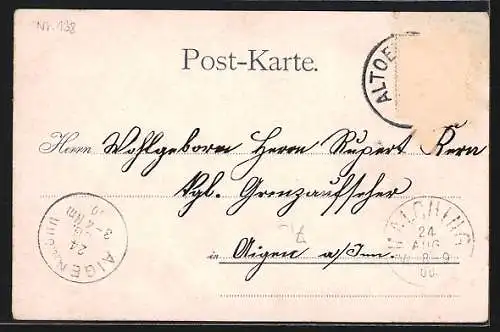 Nr. 138
Post-Karte.
ALTOE
Herrn Wohlgeborn Herrn Rupert Kern
Kgl. Grenzaufseher
in Aigen a/Inn.
AIGEN a. INN
24
3-4 Nm
00
MALCHING
24
AUG
8-9
00